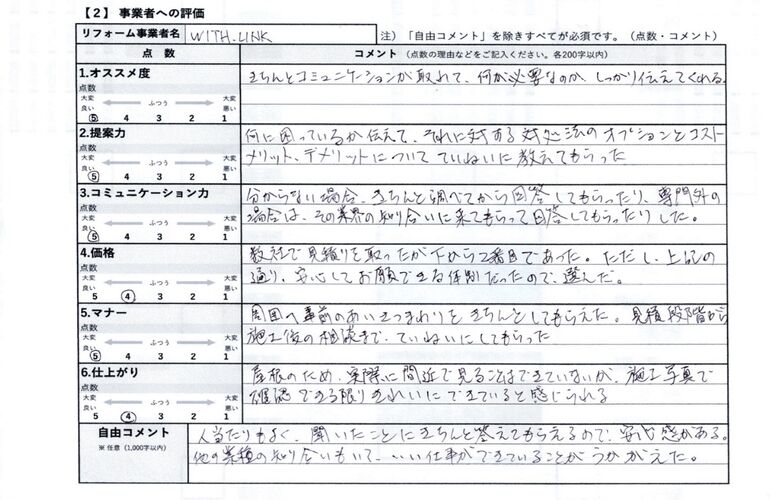 【2】事業者への評価
リフォーム事業者名 WITH-LINK 注）「自由コメント」を除きすべてが必須です。（点数・コメント）
点 数 コメント （点数の理由などをご記入ください。各200字以内）
1.オススメ度
点数
大変良い ふつう 大変悪い
5 4 3 2 1
きちんとコミュニケーションが取れて、何が必要なのか、しっかり伝えてくれる。
2.提案力
点数
大変良い ふつう 大変悪い
5 4 3 2 1
何に困っているか伝えて、それに対する対処法のオプションとコスト
メリット、デメリットについてていねいに教えてもらった
3.コミュニケーション力
点数
大変良い ふつう 大変悪い
5 4 3 2 1
分からない場合、きちんと調べてから回答してもらったり、専門外の
場合は、その業界の知り合いに来てもらって回答してもらたりした。
4.価格
点数
大変良い ふつう 大変悪い
5 4 3 2 1
数社で見積りを取ったが下から2番目であった。ただし、上記の
通り、安心してお願できる体制だったので、選んだ。
5.マナー
点数
大変良い ふつう 大変悪い
5 4 3 2 1
周囲へ事前のあいさつまわりをきちんとしてもらえた。見積段階から
施工後の相談まで、ていねいにしてもらった
6.仕上がり
点数
大変良い ふつう 大変悪い
5 4 3 2 1
屋根のため、実際に間近で見ることはできていないが、施工写真で
確認できる限りきれいにできていると感じられる
自由コメント
※ 任意（1,000字以内）
人当たりもよく、聞いたことにきちんと答えてもらえるので、安心感がある。
他の業種の知り合いもいて、いい仕事ができていることがうかがえた。